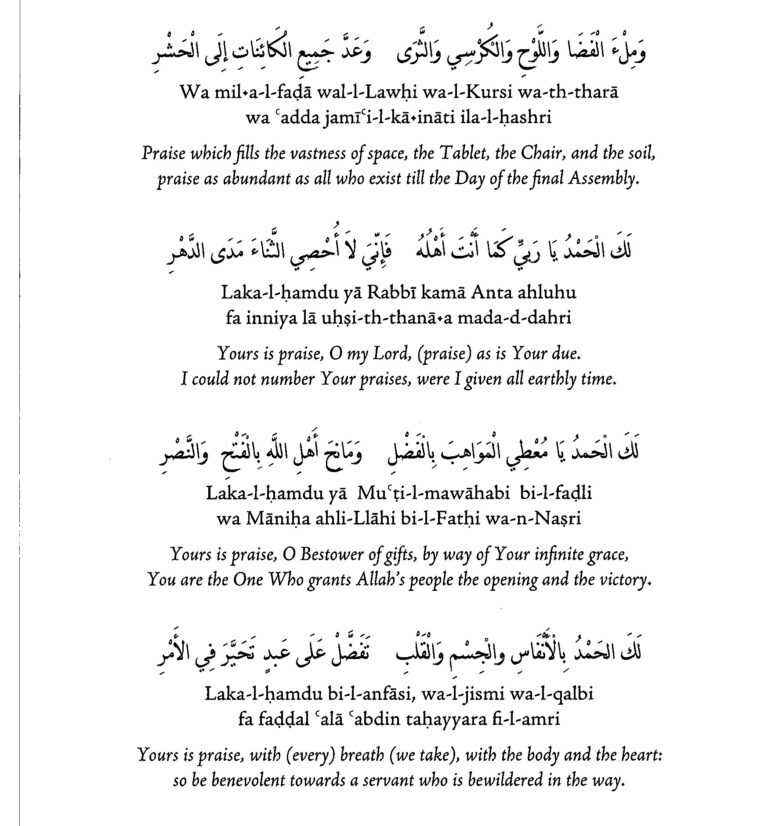 وَمِلْءَ الْفَضَا وَاللَّوْحِ وَالْكُرْسِي وَالثَّرَى    وَعَدَّ جَمِيعِ الْكَائِنَاتِ إِلَى الْحَشْرِ
Wa mil•a-l-faḍā wal-l-Lawḥi wa-l-Kursi wa-th-tharā
wa ʿadda jamīʿi-l-kā•ināti ila-l-ḥashri
Praise which fills the vastness of space, the Tablet, the Chair, and the soil,
praise as abundant as all who exist till the Day of the final Assembly.
لَكَ الْحَمْدُ يَا رَبِّي كَمَا أَنْتَ أَهْلُهُ    فَإِنِّيَ لاَ أُحْصِي الثَّنَاءَ مَدَى الدَّهْرِ
Laka-l-ḥamdu yā Rabbī kamā Anta ahluhu
fa inniya lā uḥṣi-th-thanā•a mada-d-dahri
Yours is praise, O my Lord, (praise) as is Your due.
I could not number Your praises, were I given all earthly time.
لَكَ الْحَمدُ يَا مُعْطِي الْمَوَاهِبَ بِالْفَضْلِ    وَمَانِحَ أَهْلِ اللَّهِ بِالْفَتْحِ وَالنَّصْرِ
Laka-l-ḥamdu yā Muʿṭi-l-mawāhabi bi-l-faḍli
wa Māniḥa ahli-Llāhi bi-l-Fatḥi wa-n-Naṣri
Yours is praise, O Bestower of gifts, by way of Your infinite grace,
You are the One Who grants Allah's people the opening and the victory.
لَكَ الحَمْدُ بِالْأَنْفَاسِ والْجِسْمِ وَالْقَلْبِ    تَفَضَّلْ عَلَى عَبدٍ تَحَيَّرَ فِي الأَمْرِ
Laka-l-ḥamdu bi-l-anfāsi, wa-l-jismi wa-l-qalbi
fa faḍḍal ʿalā ʿabdin taḥayyara fi-l-amri
Yours is praise, with (every) breath (we take), with the body and the heart:
so be benevolent towards a servant who is bewildered in the way.